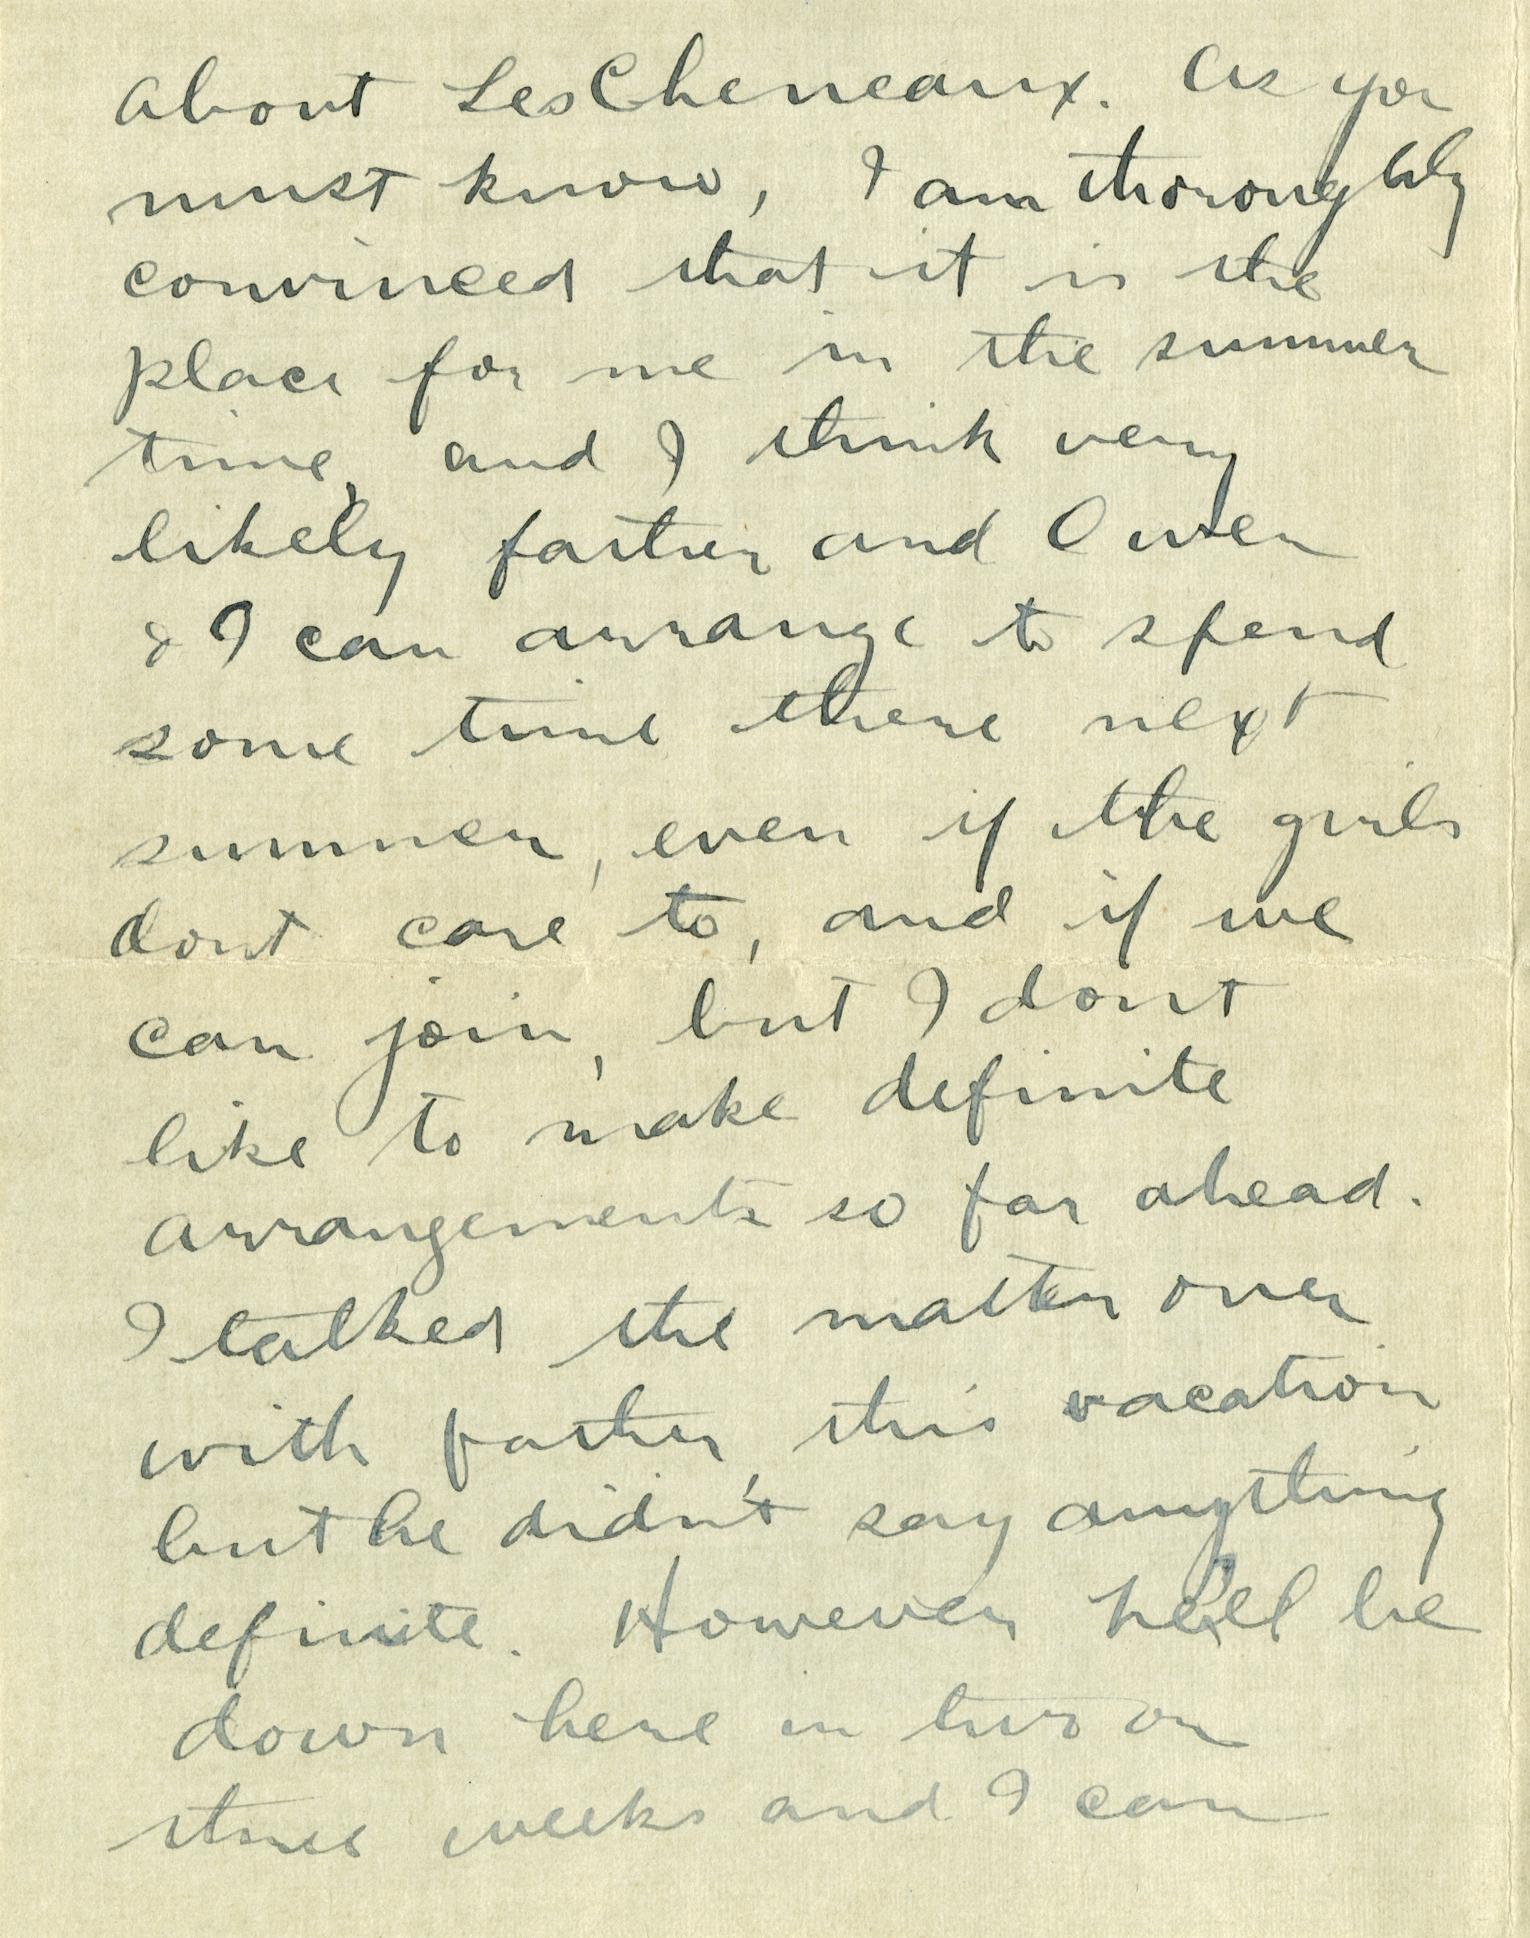 about LesCheneaux. As you
must know, I am thoroughly
convinced that it is the
place for me in the summer
time, and I think very
likely father and Owen
& I can arrange to spend
some time there next
summer, even if the girls
dont care to, and if we
can join, but I dont
like to make definite
arrangements so far ahead.
I talked the matter over
with father, this vacation
but he didn't say anything
definite. However he'll be
down here in two or
three weeks and I can